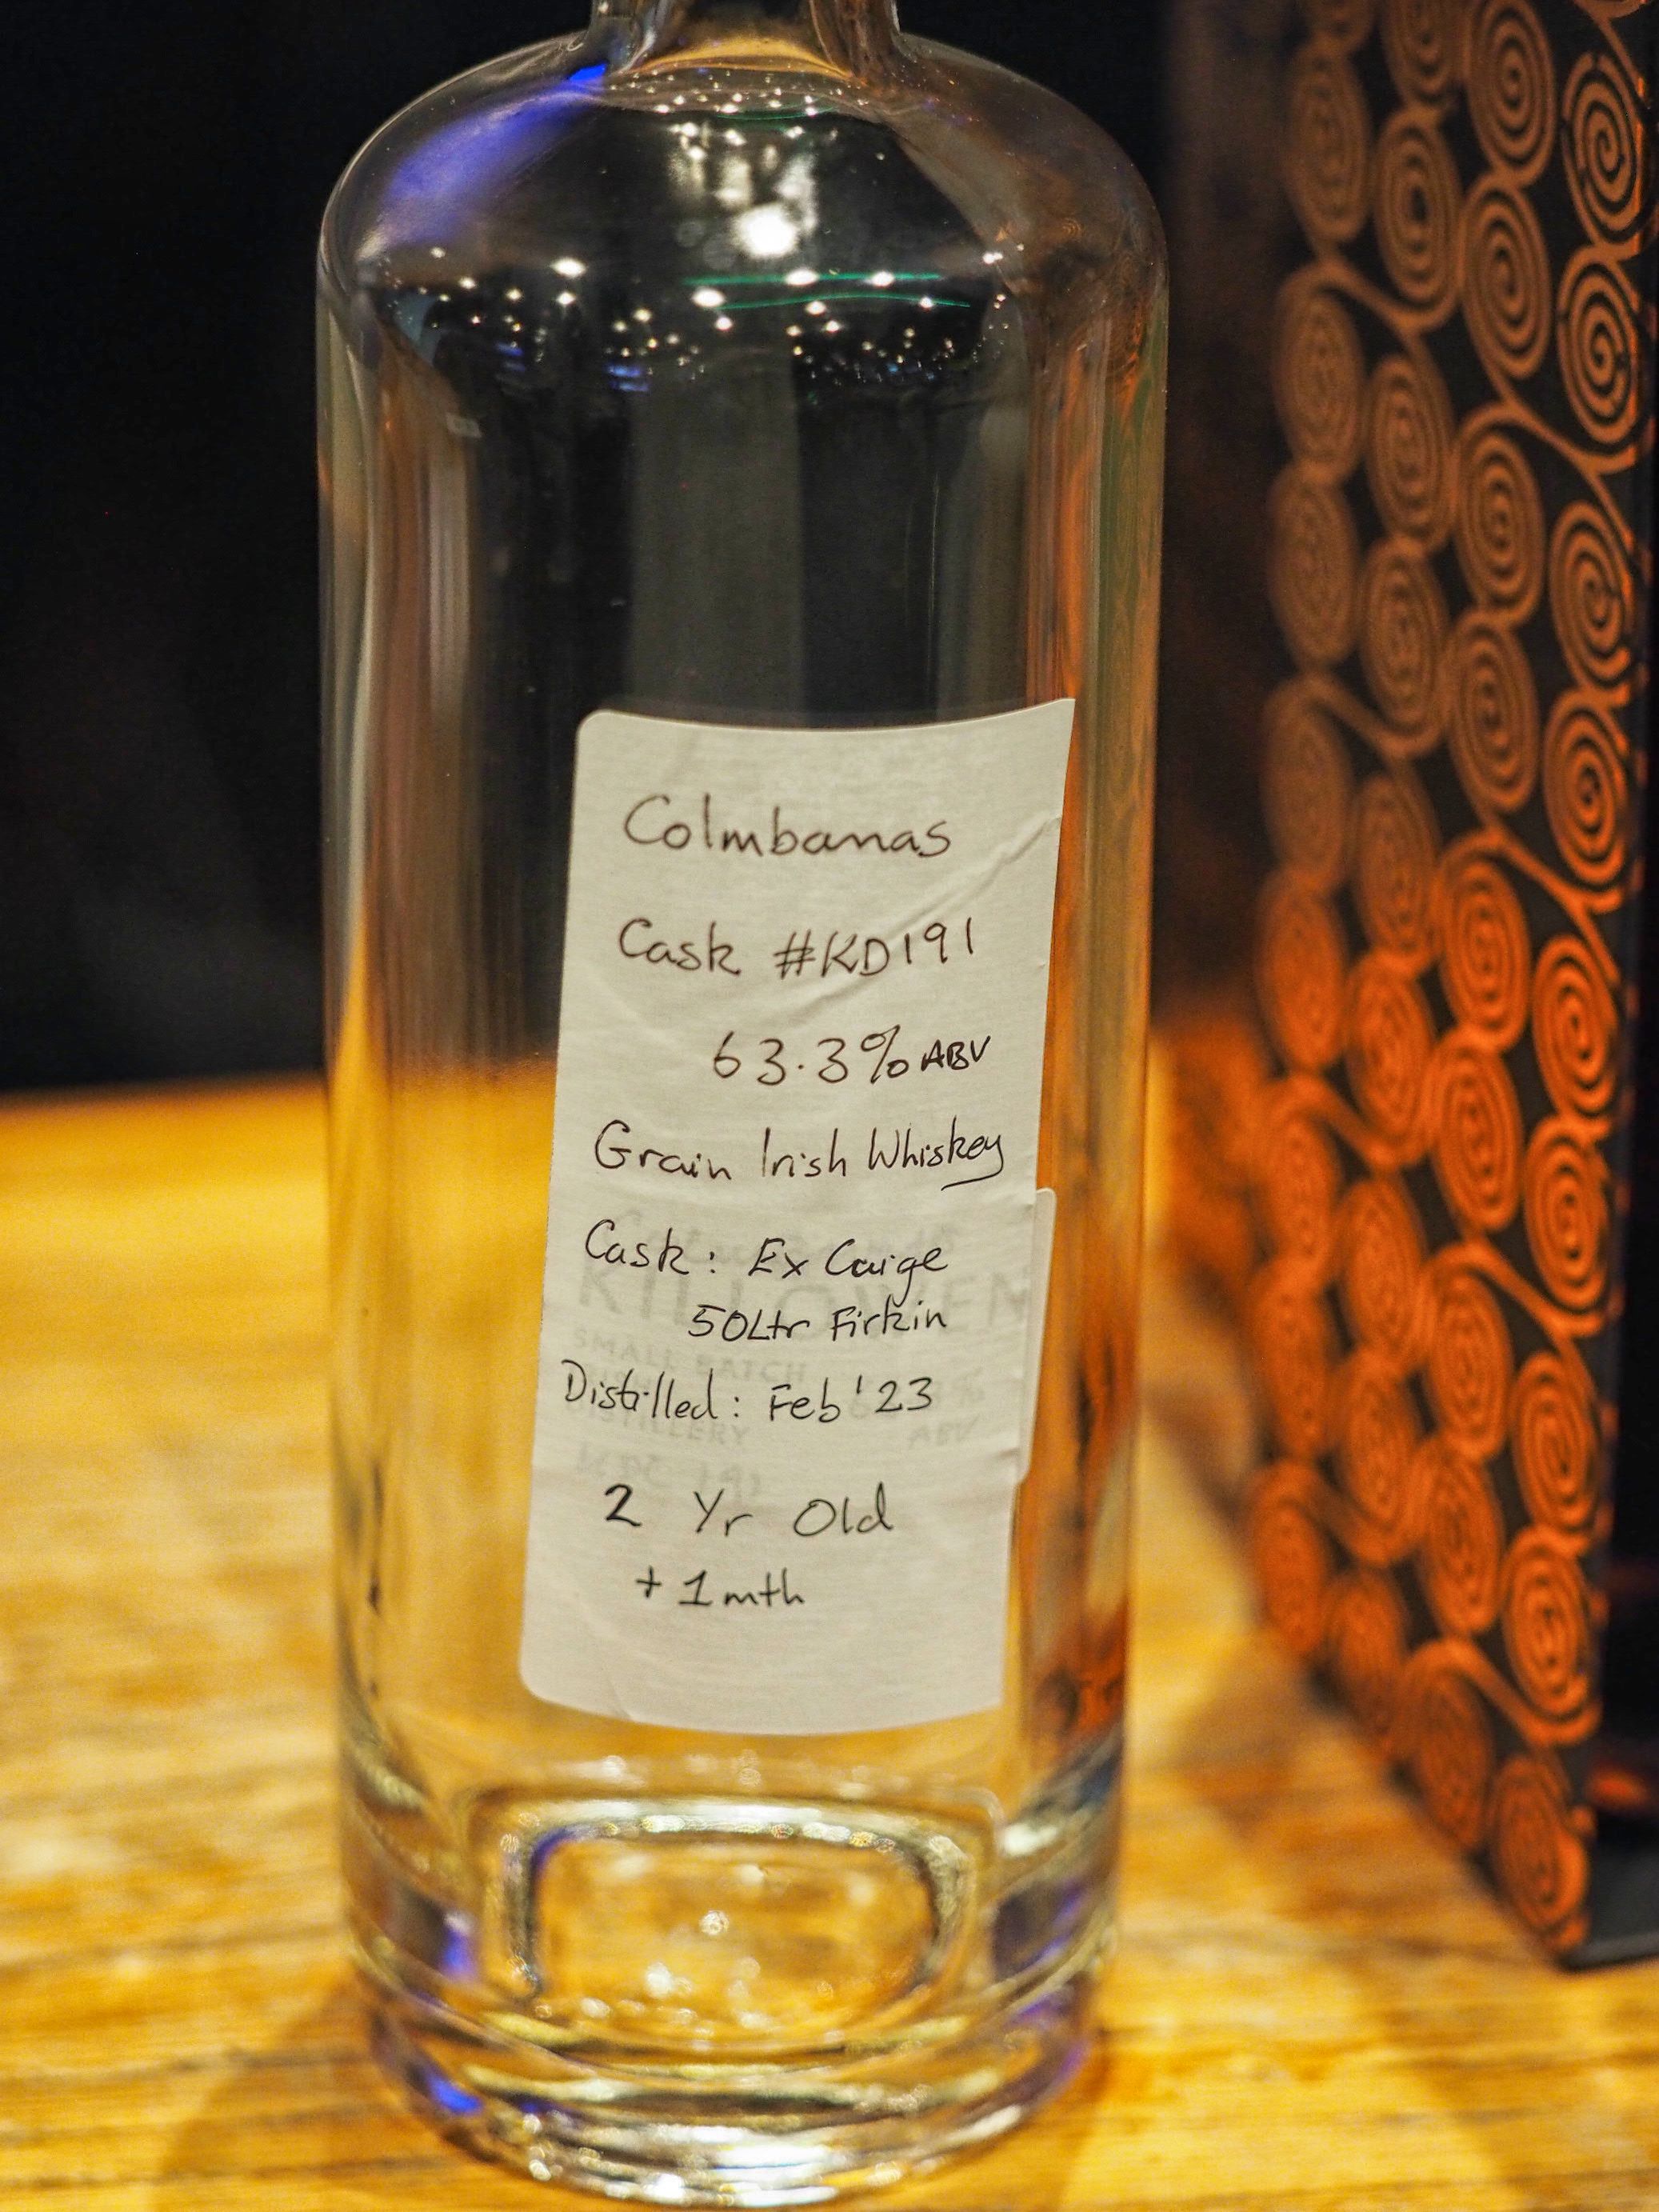 Colmbanas
Cask #KD191
63.3% ABV
Grain Irish Whiskey
Cask: Ex Caige
50Ltr Firkin
Distilled: Feb '23
2 Yr Old
+ 1mth
KILLOWEN
SMALL BATCH
DISTILLERY
ABV